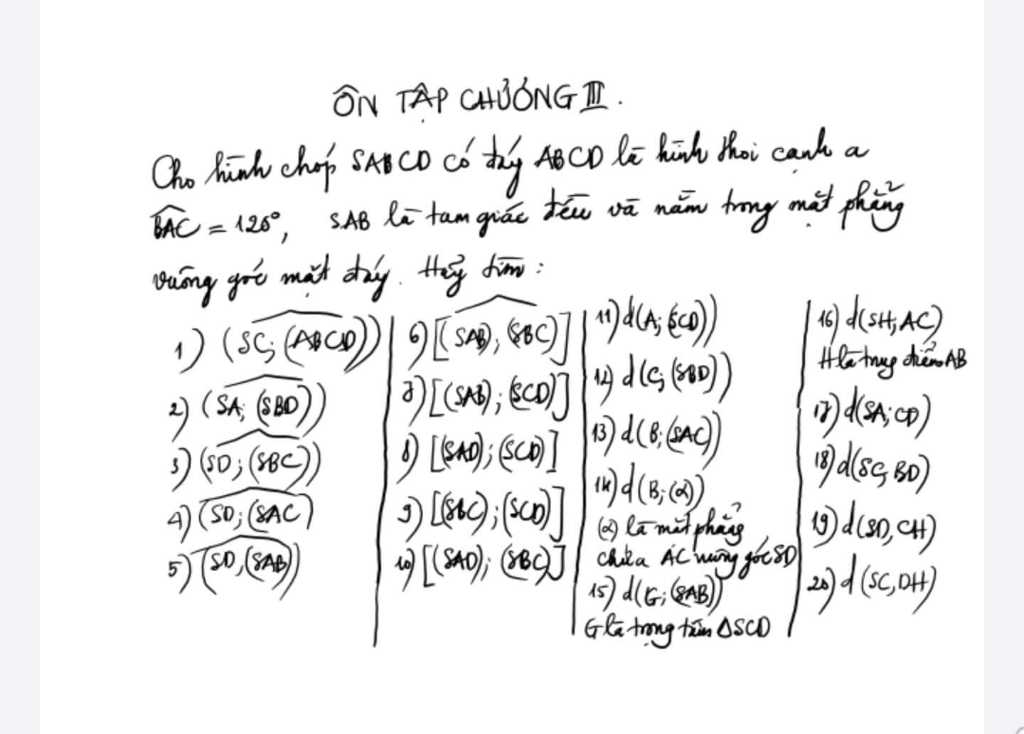 ÔN TẬP CHƯƠNG III.
Cho hình chóp SABCD có đáy ABCD là hình thoi cạnh a
BAC = 120°, SAB là tam giác đều và nằm trong mặt phẳng
vuông góc mặt đáy. Hãy tìm:
1) (SC; (ABCD))
2) (SA; (SBD))
3) (SD; (SBC))
4) (SD; (SAC)
5) (SD, (SAB))
6) [(SAB); (SBC)]
7) [(SAB); (SCD)]
8) [(SAD); (SCD)]
9) [(SBC); (SCD)]
10) [(SAD); (SBC)]
11) d(A; (SCD))
12) d(C; (SBD))
13) d(B; (SAC))
14) d(B; (α))
(α) là mặt phẳng
chứa AC vuông góc SD
15) d(G; (SAB))
G là trọng tâm ΔSCD
16) d(SH; AC)
H là trung điểm AB
17) d(SA; CD)
18) d(SC, BD)
19) d(SD, CH)
20) d(SC, DH)